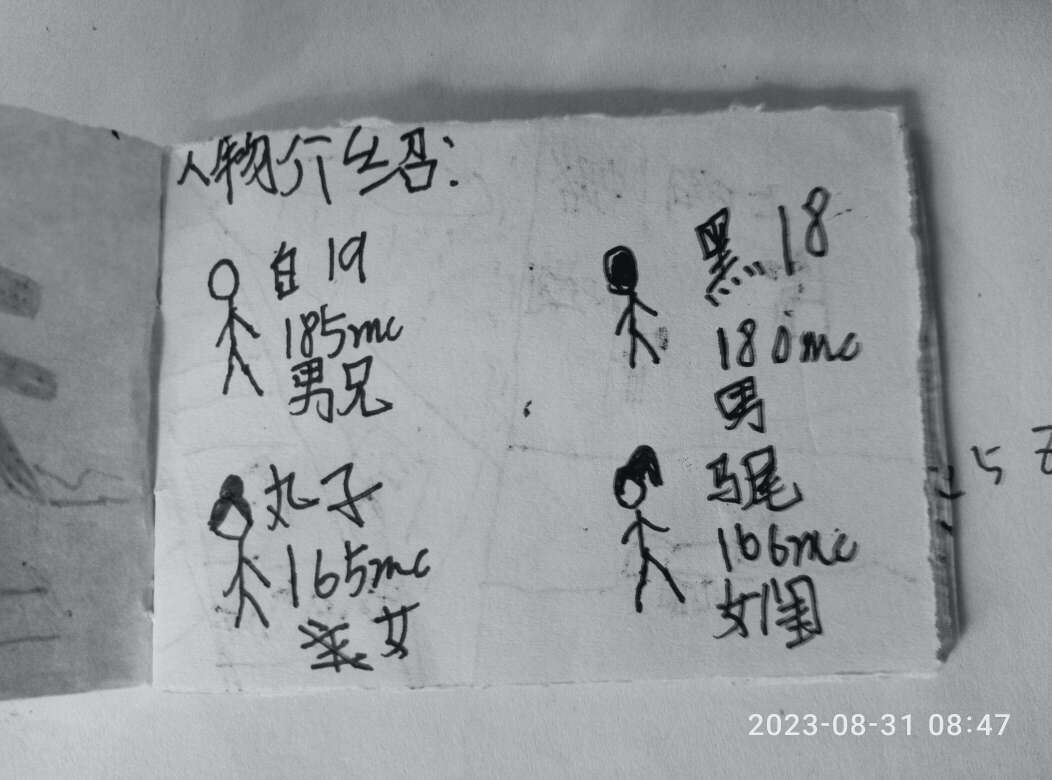 人物介绍:
白 19
185mc
男兄
黑 18
180mc
男
丸子
165mc
女
马尾
166mc
女闺
5
2023-08-31 08:47